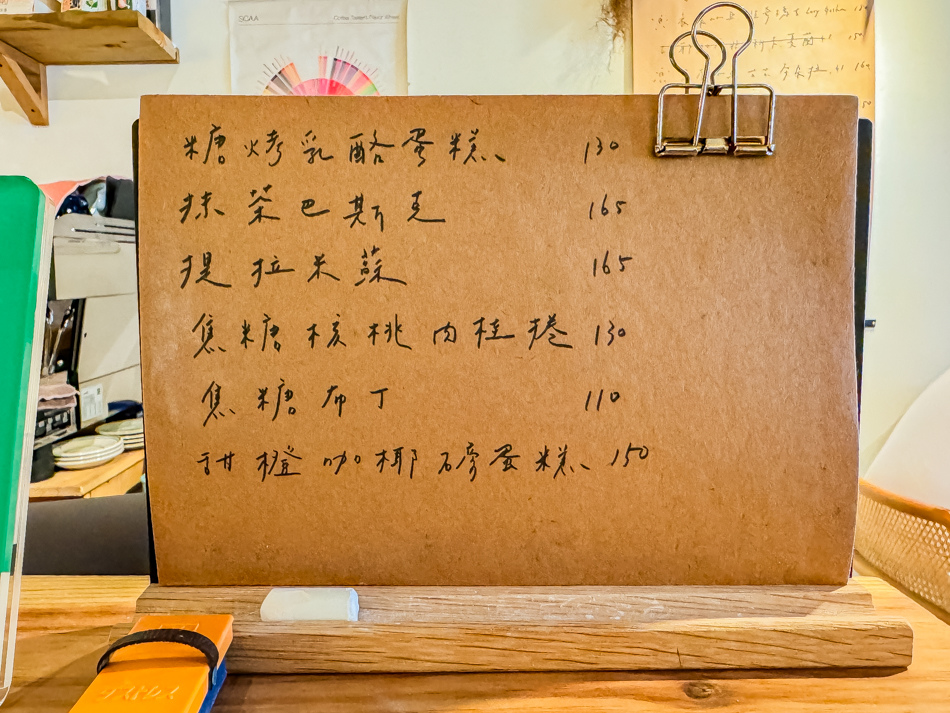 SCAA
Coffee Tasters Flavor Wheel
糖烤乳酪蛋糕 130
抹茶巴斯克 165
提拉米蘇 165
焦糖核桃肉桂捲 130
焦糖布丁 110
甜橙咖椰磅蛋糕 150